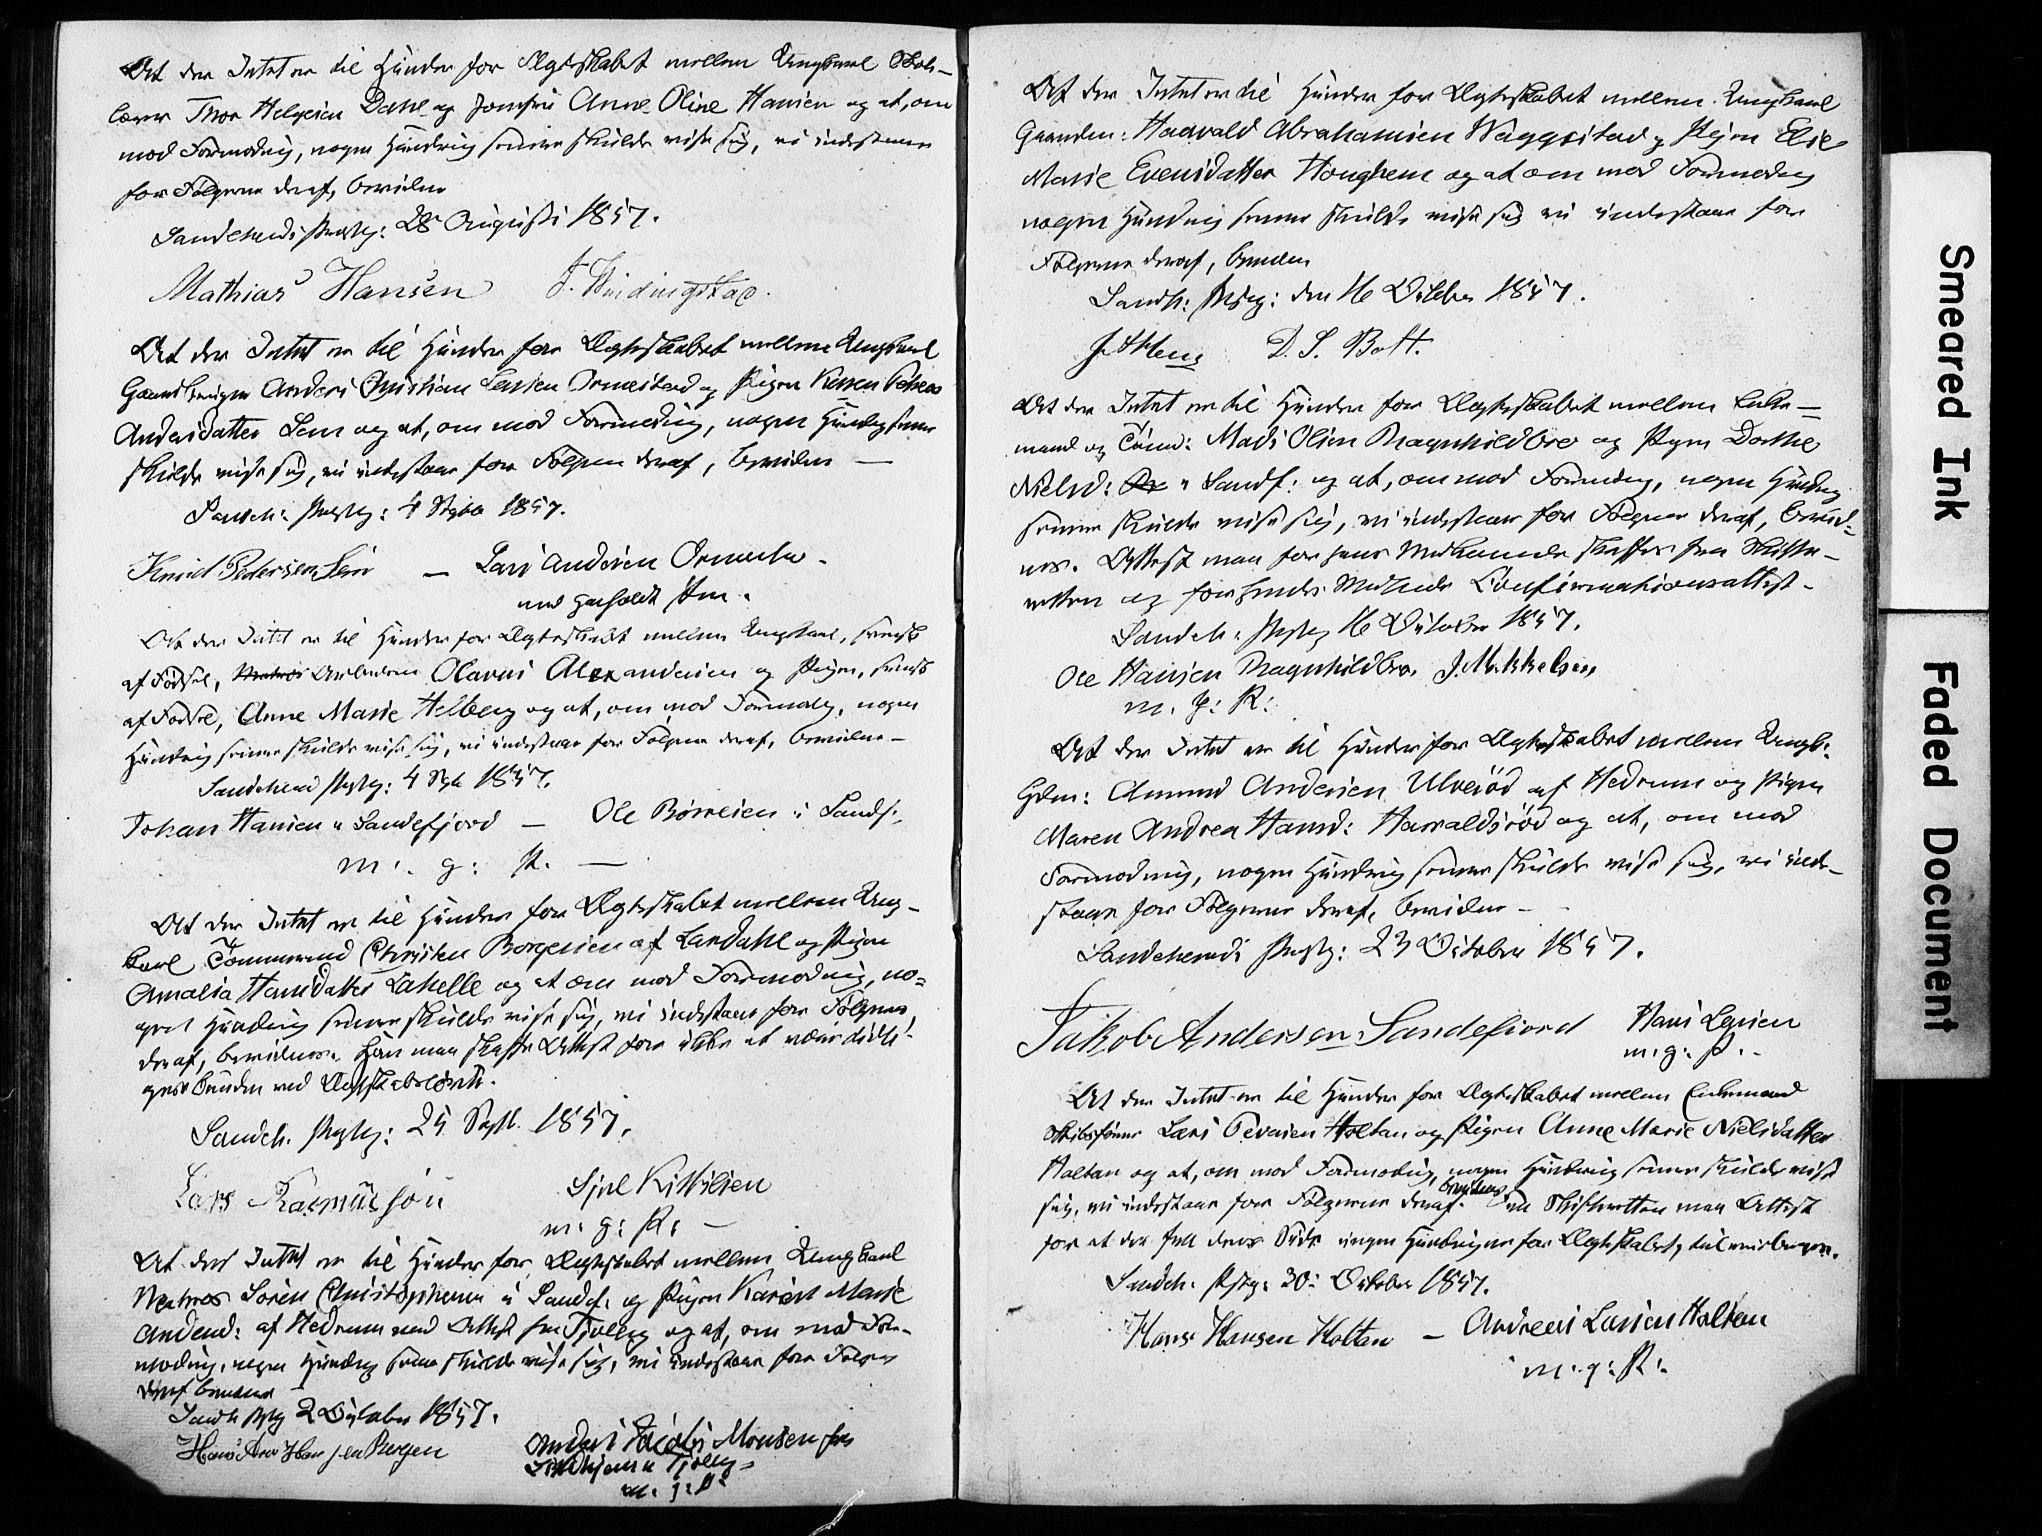 At der Intet er til Hinder for Ægteskabet mellem Ungkarl Skole-
lærer Thor Helgesen Dahl og Jomfru Anne Oline Hansen og at, om
mod Formodning, nogen Hindring senere skulde vise sig, vi indestaaer
for Følgerne deraf, bevidne
Sandeherreds Prestg: 28 Augusti 1857.
Mathias Hansen J. Hvidingstad.
At der Intet er til Hinder for Ægteskabet mellem Ungkarl
Gaardbruger Anders Christian Larsen Ormestad og Pigen Karen Petrea
Andersdatter Sem og at, om mod Formodning, nogen Hindring senere
skulde vise sig, vi indestaaer for Følgerne deraf, bevidnes —
Sandeh: Prestg: 4 Septbr 1857.
Knud Pedersen Sem — Lars Andersen Ormestad
med paaholdt Pen.
At der Intet er til Hinder for Ægteskabet mellem Ungkarl, svensk
af Fødsel, Arbeideren Olavus Alexandersen og Pigen, svensk
af Fødsel, Anne Marie Helberg og at, om mod Formodng, nogen
Hindring senere skulde vise sig, vi indestaaer for Følgerne deraf, bevidne —
Sandeherred Prestg: 4 Sept 1857.
Johan Hansen i Sandefjord — Ole Børresen i Sandf:
m. g: P. —
At der Intet er til Hinder for Ægteskabet mellem Ung-
karl Tømmermand Christen Borgersen af Lardahl og Pigen
Amalia Hansdatter Lahelle og at om mod Formodning, no-
gen Hindring senere skulde vise sig, vi indestaaer for Følgerne
deraf, bevidnes. Han maa skaffe Attest for ikke at være tidli-
gere bunden ved Ægteskabsløvte.
Sandeh. Prestg: 25 Septb. 1857.
Lars Rasmussøn Sjul Kittilsen
m: g: P: —
At der Intet er til Hinder for Ægteskabet mellem Ungkarl
Matros Søren Christophersen i Sandef: og Pigen Karen Marie
Andersd: af Hedrum med Attest fra Tjølling og at, om mod For-
modning, nogen Hindring senere skulde vise sig, vi indestaaer for Følgerne
deraf bevidnes
Sandh Prstg 2 October 1857.
Hans Hansen Bergen Anders Jacobs Monsen fra
i Tjølling
m. g: P.
At der Intet er til Hinder for Ægteskabet mellem Ungkarl
Gaardm: Haavald Abrahamsen Wäggestad og Pigen Elise
Marie Evensdatter Houghem og at om mod Formodng
nogen Hindring senere skulde vise sig vi indestaaer for
Følgerne deraf, bevidne
Sandh: Prstg: den 16 October 1857.
D. S. Bott.
At der Intet er til Hinder for Ægteskabet mellem Enke-
mand og Tømm: Mads Olsen Ragnhildbro og Pigen Dorthe
Nielsd: i Sandf: og at, om mod Formodng, nogen Hindring
senere skulde vise sig, vi indestaaer for Følgerne deraf, bevid-
nes. Attest maa for hans Vedkommende skaffes fra Skifte-
retten og for hendes Vedkmde Confirmationsattest.
Sandeh: Prestg 16 October 1857.
Ole Hansen Ragnhildbro. J. Mikkelsen
m. g: P:
At der Intet er til Hinder for Ægteskabet mellem Ungk:
Gdm: Amund Andersen Ulverød af Hedrum og Pigen
Maren Andrea Hansd: Harraldsrød og at, om mod
Formodning, nogen Hindring senere skulde vise sig, vi inde-
staaer for Følgerne deraf, bevidne —
Sandeherreds Prestg: 23 October 1857.
Jakob Andersen Sandefiord Hans Larsen
m: g: P.
At der Intet er til Hinder for Ægteskabet mellem Enkemand
Skibsfører Lars Pedersen Holtan og Pigen Anne Marie Nielsdatter
Holtan og at, om mod Formodning, nogen Hindring senere skulde vise
sig, vi indestaaer for Følgerne deraf bevidnes. Fra Skifteretten maa Attest
for at der fra dens Side ingen Hindring er for Ægteskabet, tilveiebringes.
Sandeh: Pstg: 30: October 1857.
Hans Hansen Holtan — Andreas Larsen Holtan
m. g: P:
Smeared Ink
Faded Document